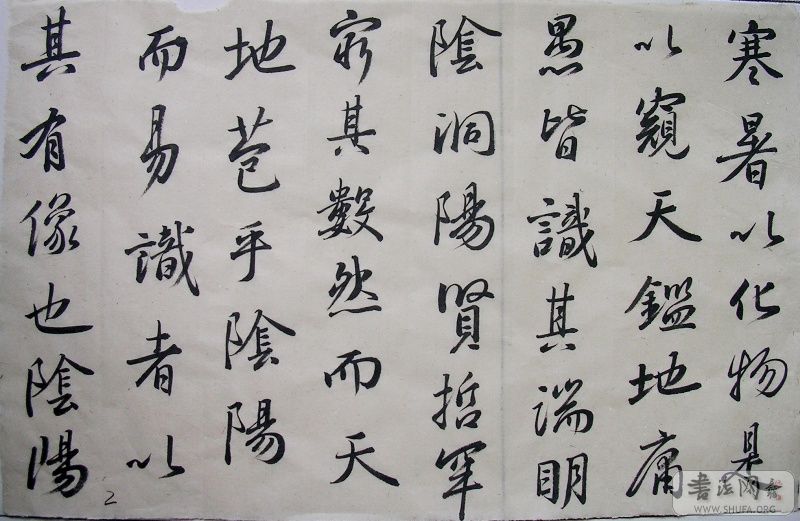 寒暑以化物是
以窺天鑑地庸
愚皆識其端明
陰洞陽賢哲罕
窮其數然而天
地苞乎陰陽
而易識者以
其有像也陰陽
2
书法网
WWW.SHUFA.ORG